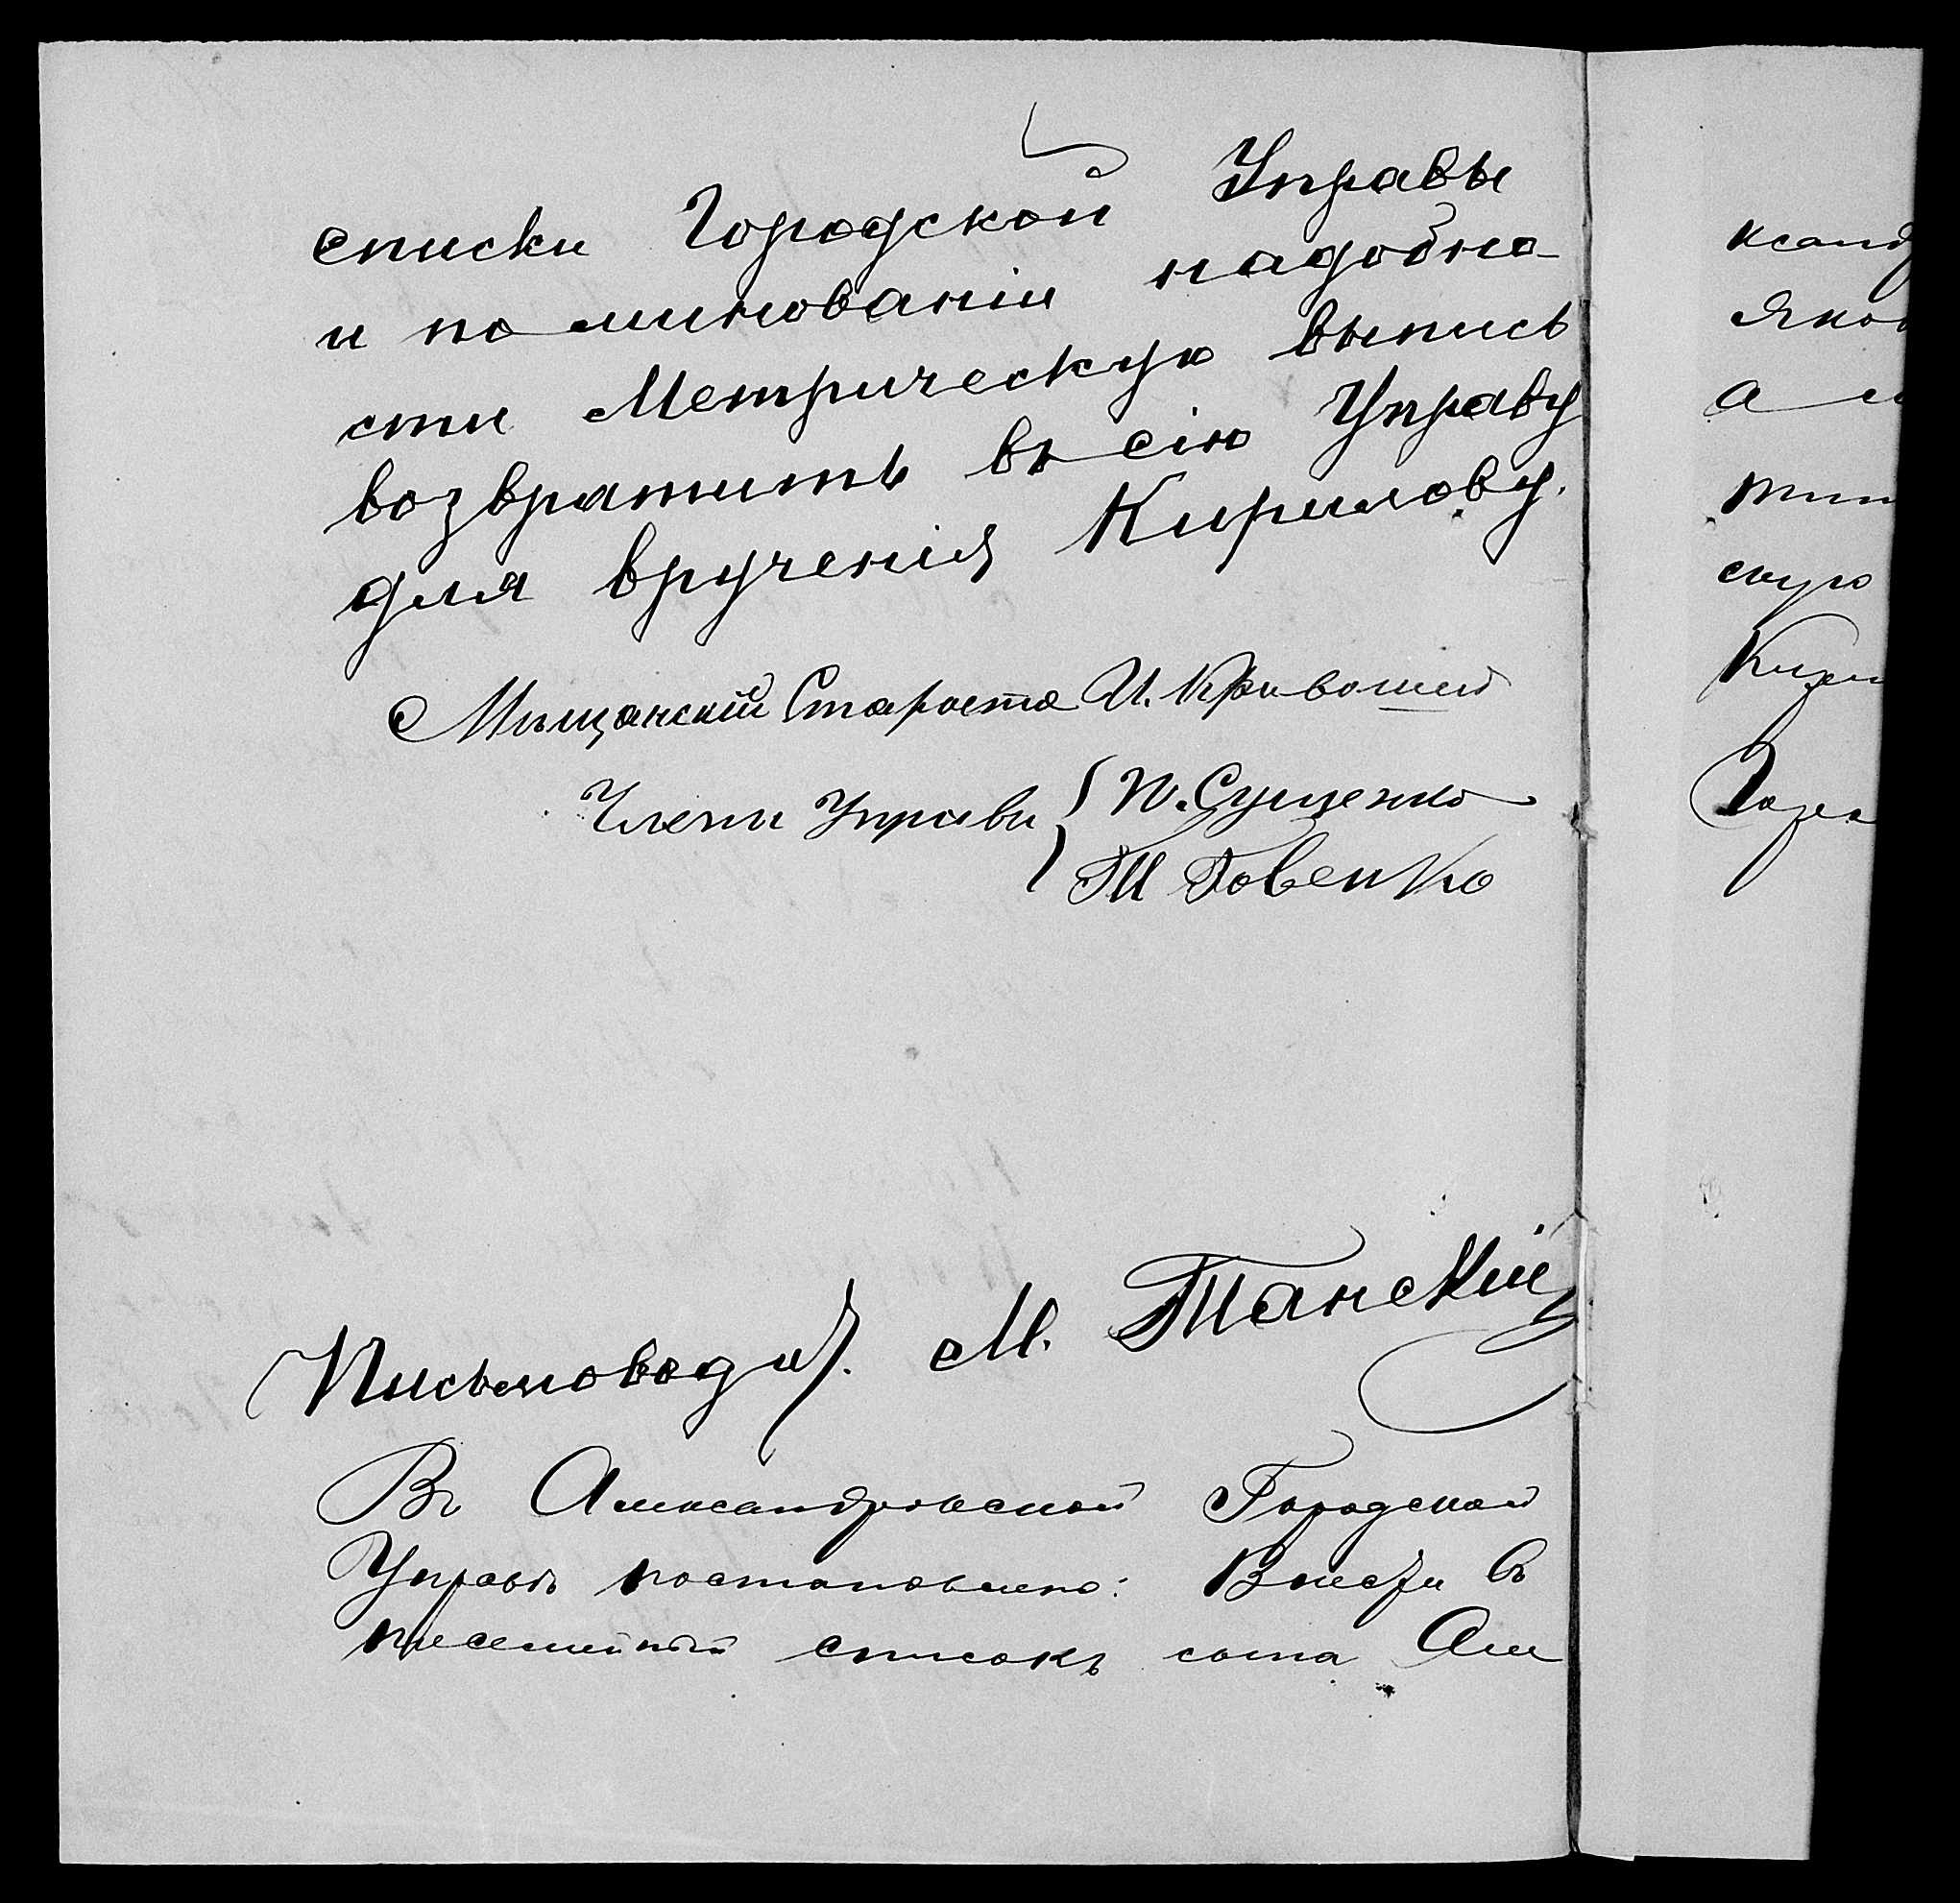 списки Городской Управы
и по минованіи надобно-
сти Метрическую выпись
возвратить въ сію Управу
для врученія Кирилову.
Мѣщанскій Староста И. Кривошей
Члены Управы { П. Сущенко
Т Говенко
Письмоводит. М. Танскій
Въ Александровской Городской
Управѣ постановлено: Внести въ
посемейный списокъ сына Але
ксанд
Яков
а м
скую
Кири
Горо